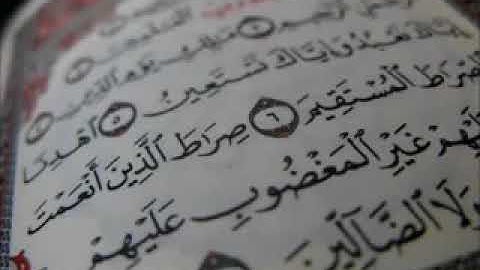 الرَّحِيمِ يَوْمِ الدِّينِ
إِيَّاكَ نَعْبُدُ وَإِيَّاكَ نَسْتَعِينُ ٥ اهْدِنَا
الصِّرَاطَ الْمُسْتَقِيمَ ٦ صِرَاطَ الَّذِينَ أَنْعَمْتَ
لَيْهِمْ غَيْرِ الْمَغْضُوبِ عَلَيْهِمْ
وَلَا الضَّالِّينَ